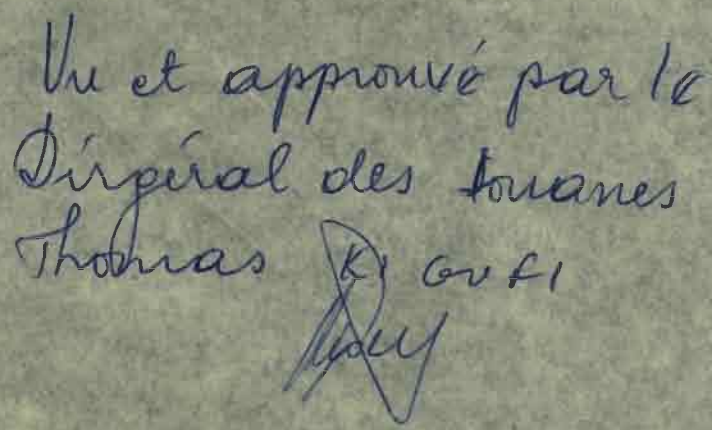 Vu et approuvé par le
Dirgéral des douanes
Thomas